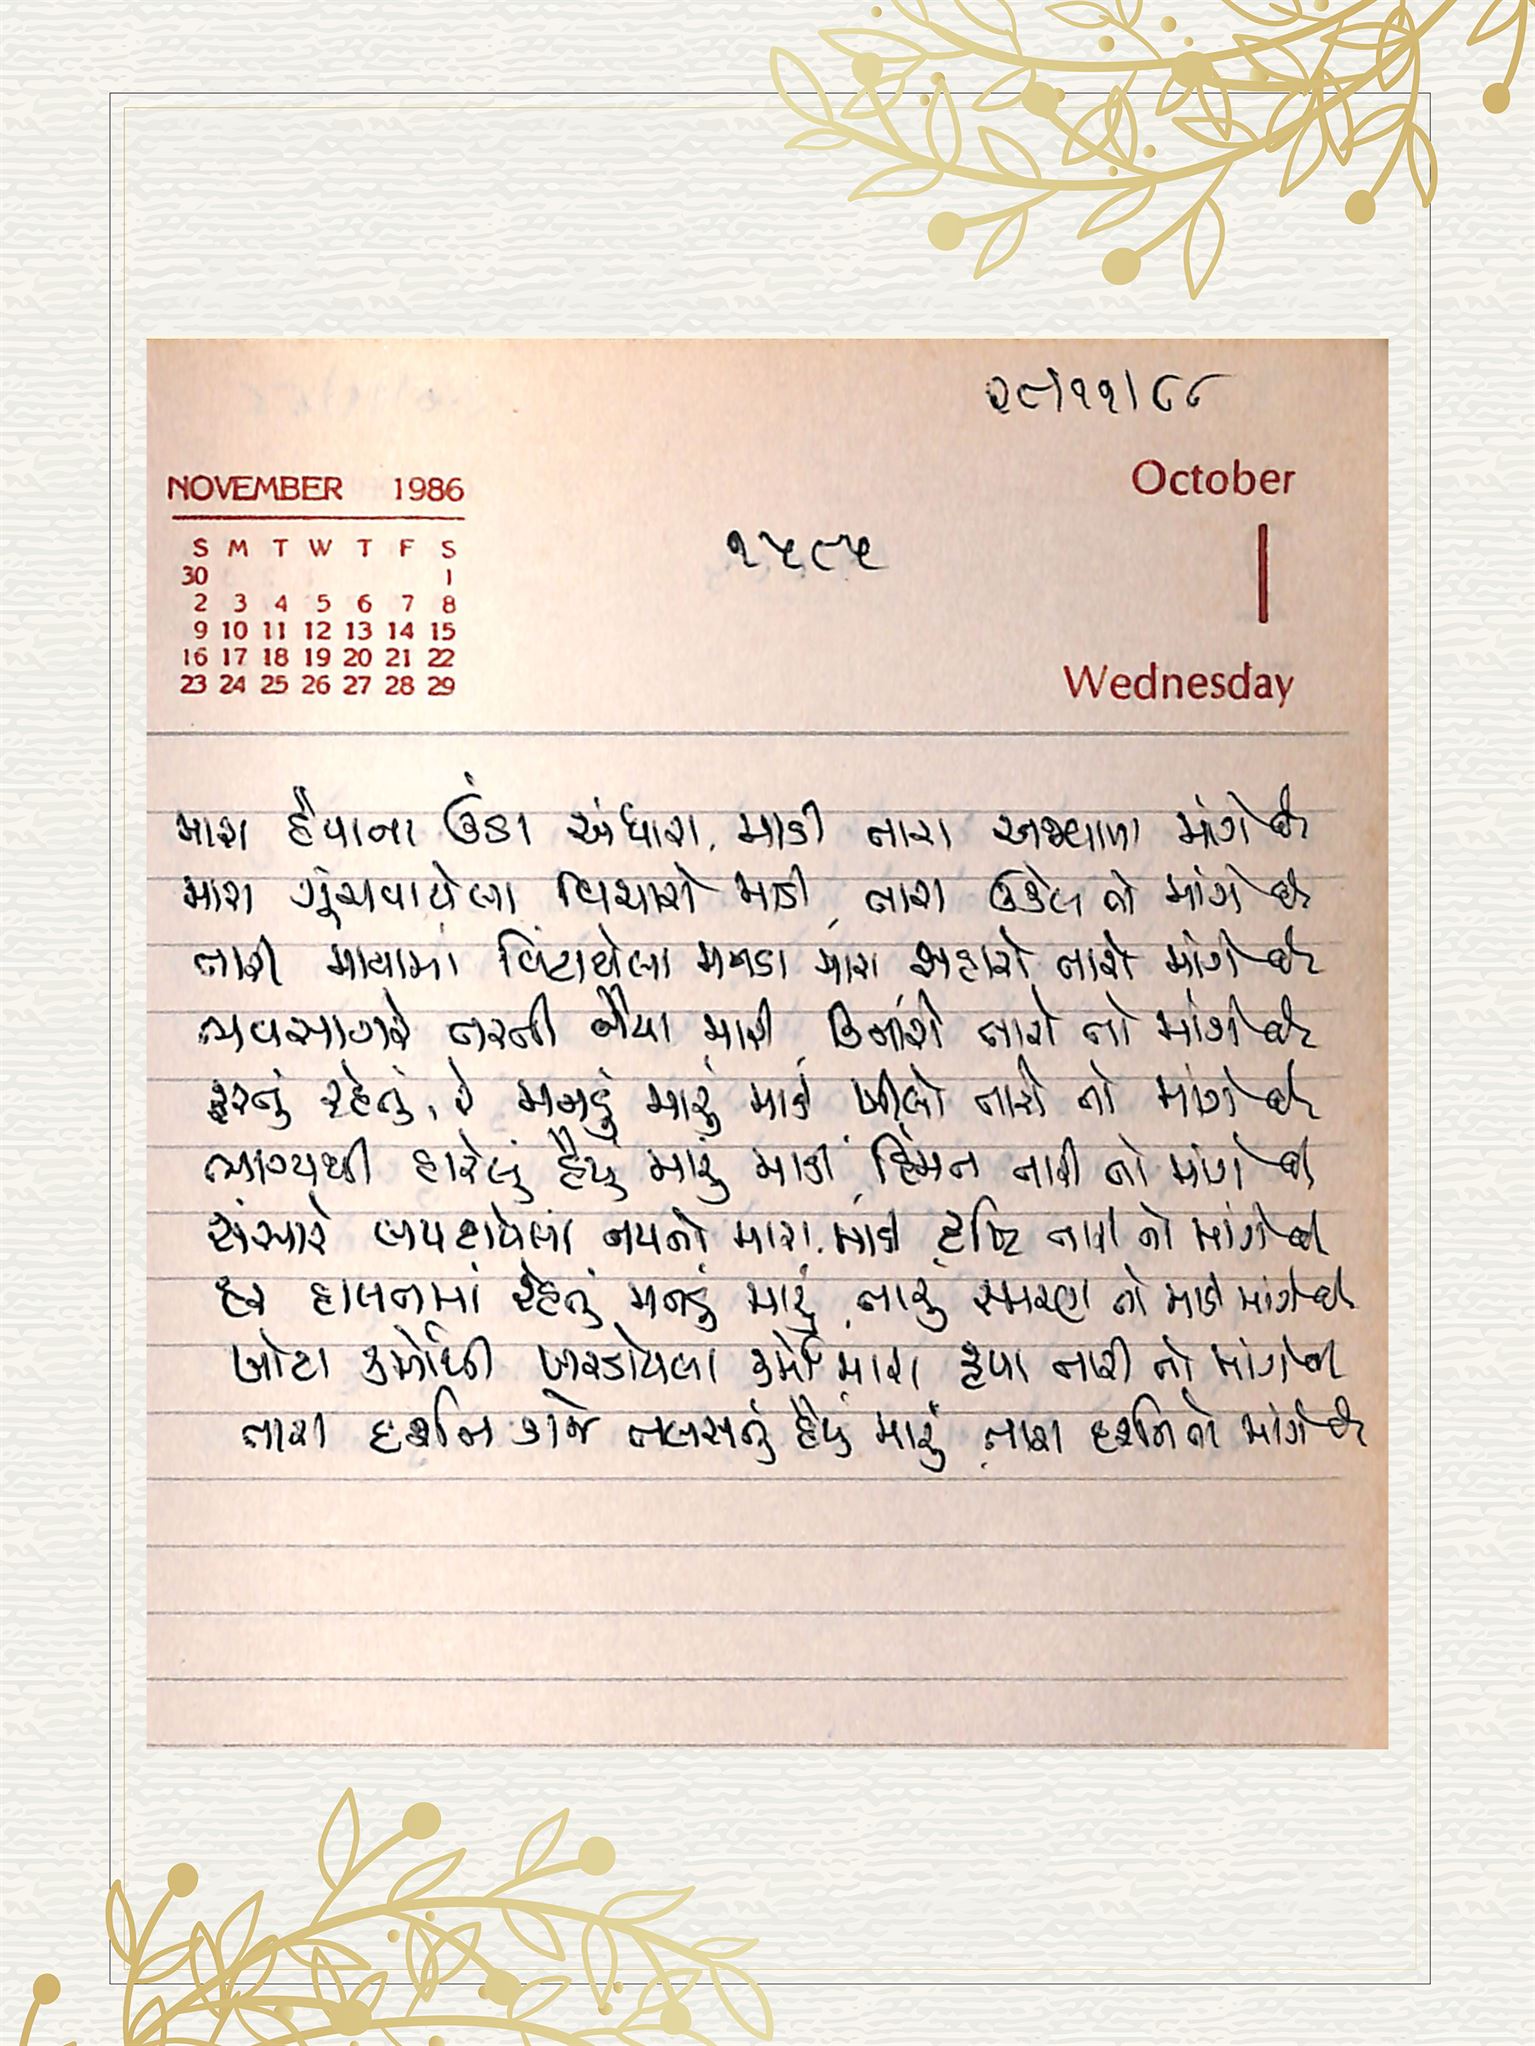 ૨૯/૧૧/૮૮
NOVEMBER 1986
S M T W T F S
30 1
2 3 4 5 6 7 8
9 10 11 12 13 14 15
16 17 18 19 20 21 22
23 24 25 26 27 28 29
October
1
Wednesday
૧૫૯૫
મારા હૈયાના ઉંડા અંધારા, માડી તારા અજવાળા માંગે છે
મારા ગૂંચવાયેલા વિચારો માડી, તારા ઉકેલ તો માંગે છે
તારી માયામાં વિંટાયેલા મનડા મારા સહારો તારો માંગે છે
ભવસાગરે તરતી નૈયા મારી, કિનારો તારો તો માંગે છે
ફરતું રહેતું, રે મનડું મારું માડી ખીલો તારો તો માંગે છે
ભાગ્યથી હારેલું હૈયું મારું માડી, હિંમત તારી તો માંગે છે
સંસારે લપટાયેલાં નયનો મારા, માડી દૃષ્ટિ તારી તો માંગે છે
હર હાલતમાં રહેતું મનડું મારું, તારું સ્મરણ તો માડી માંગે છે
ખોટા કર્મોથી ખરડાયેલા કર્મો મારા કૃપા તારી તો માંગે છે
તારા દર્શન કાજે તલસતું હૈયું મારું, તારા દર્શન તો માંગે છે